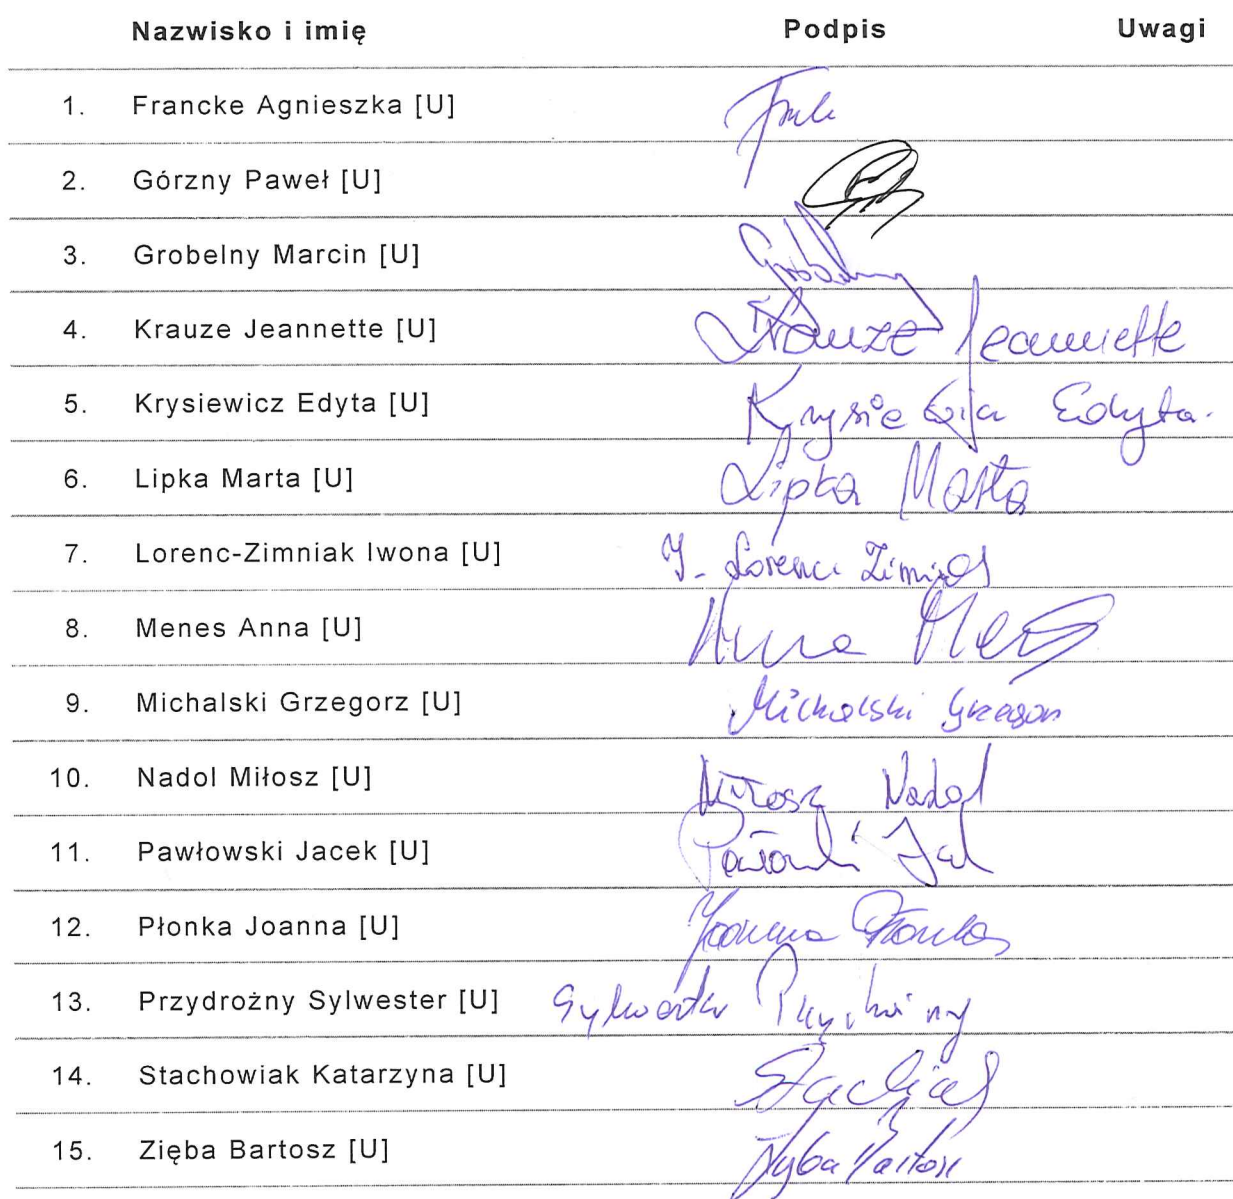 Nazwisko i imię Podpis Uwagi
1. Francke Agnieszka [U]
2. Górzny Paweł [U]
3. Grobelny Marcin [U] Grobelny
4. Krauze Jeannette [U] Krauze Jeannette
5. Krysiewicz Edyta [U] Edyta
6. Lipka Marta [U] Lipka Marta
7. Lorenc-Zimniak Iwona [U] Lorenc
8. Menes Anna [U] Anna
9. Michalski Grzegorz [U] Michalski Grzegorz
10. Nadol Miłosz [U] Miłosz Nadol
11. Pawłowski Jacek [U]
12. Płonka Joanna [U] Joanna Płonka
13. Przydrożny Sylwester [U] Sylwester
14. Stachowiak Katarzyna [U]
15. Zięba Bartosz [U]